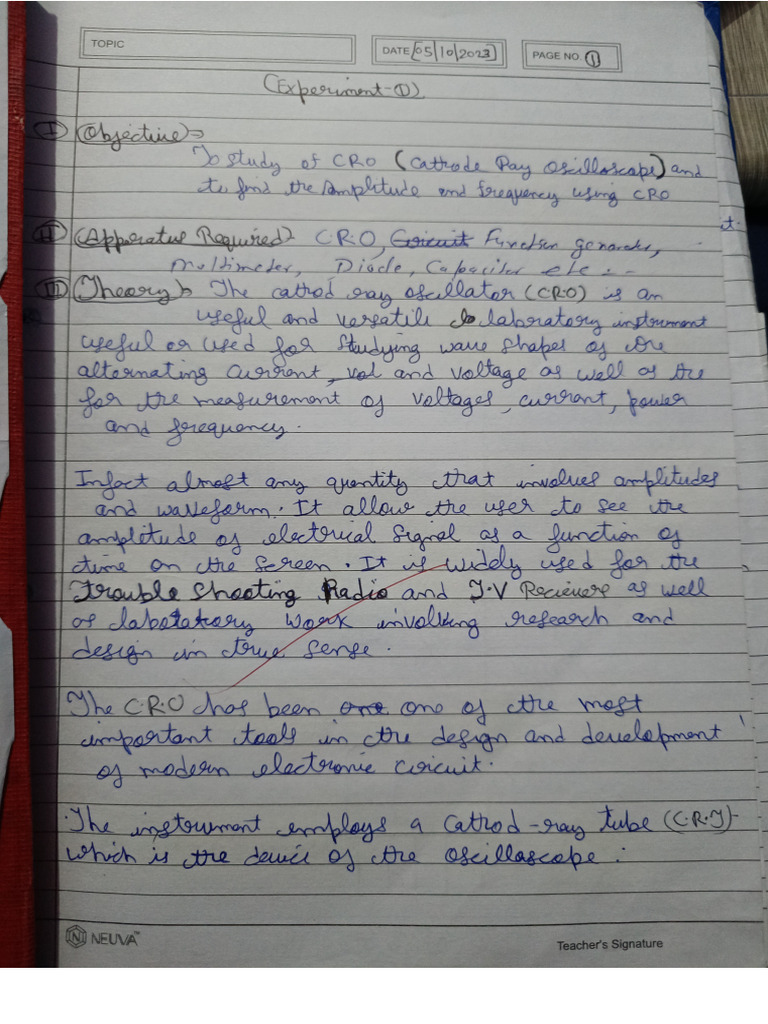 TOPIC
DATE 05/10/2023
PAGE NO. 1
(Experiment-1)
I (Objective)⇒
To study of CRO (Cathode Ray Oscilloscope) and
to find the Amplitude and frequency using CRO
t.
II (Apparatus Required) C.R.O, Circuit Function genarater,
Multimeter, Diode, Capaciter etc :--
III (Theory) The cathod ray oscillator (CRO) is an
useful and versatile laboratory instrument
useful or used for Studying wave shapes of the
alternating current, vol and voltage as well as the
for the measurement of voltages, current, power
and frequency.
Infact almost any quantity that involves amplitudes
and waveform. It allow the user to see the
amplitude of electrical signal as a function of
time on the screen. It is widely used for the
Trouble shooting Radio and T.V Recievers as well
as labotatory work involking research and
design in true sense.
The C.R.O has been one one of the most
important tools in the design and development
of modern electronic circuit.
The instrument employs a Cathod-ray tube (C.R.T)
which is the device of the oscillascope :
NEUVA™
Teacher's Signature